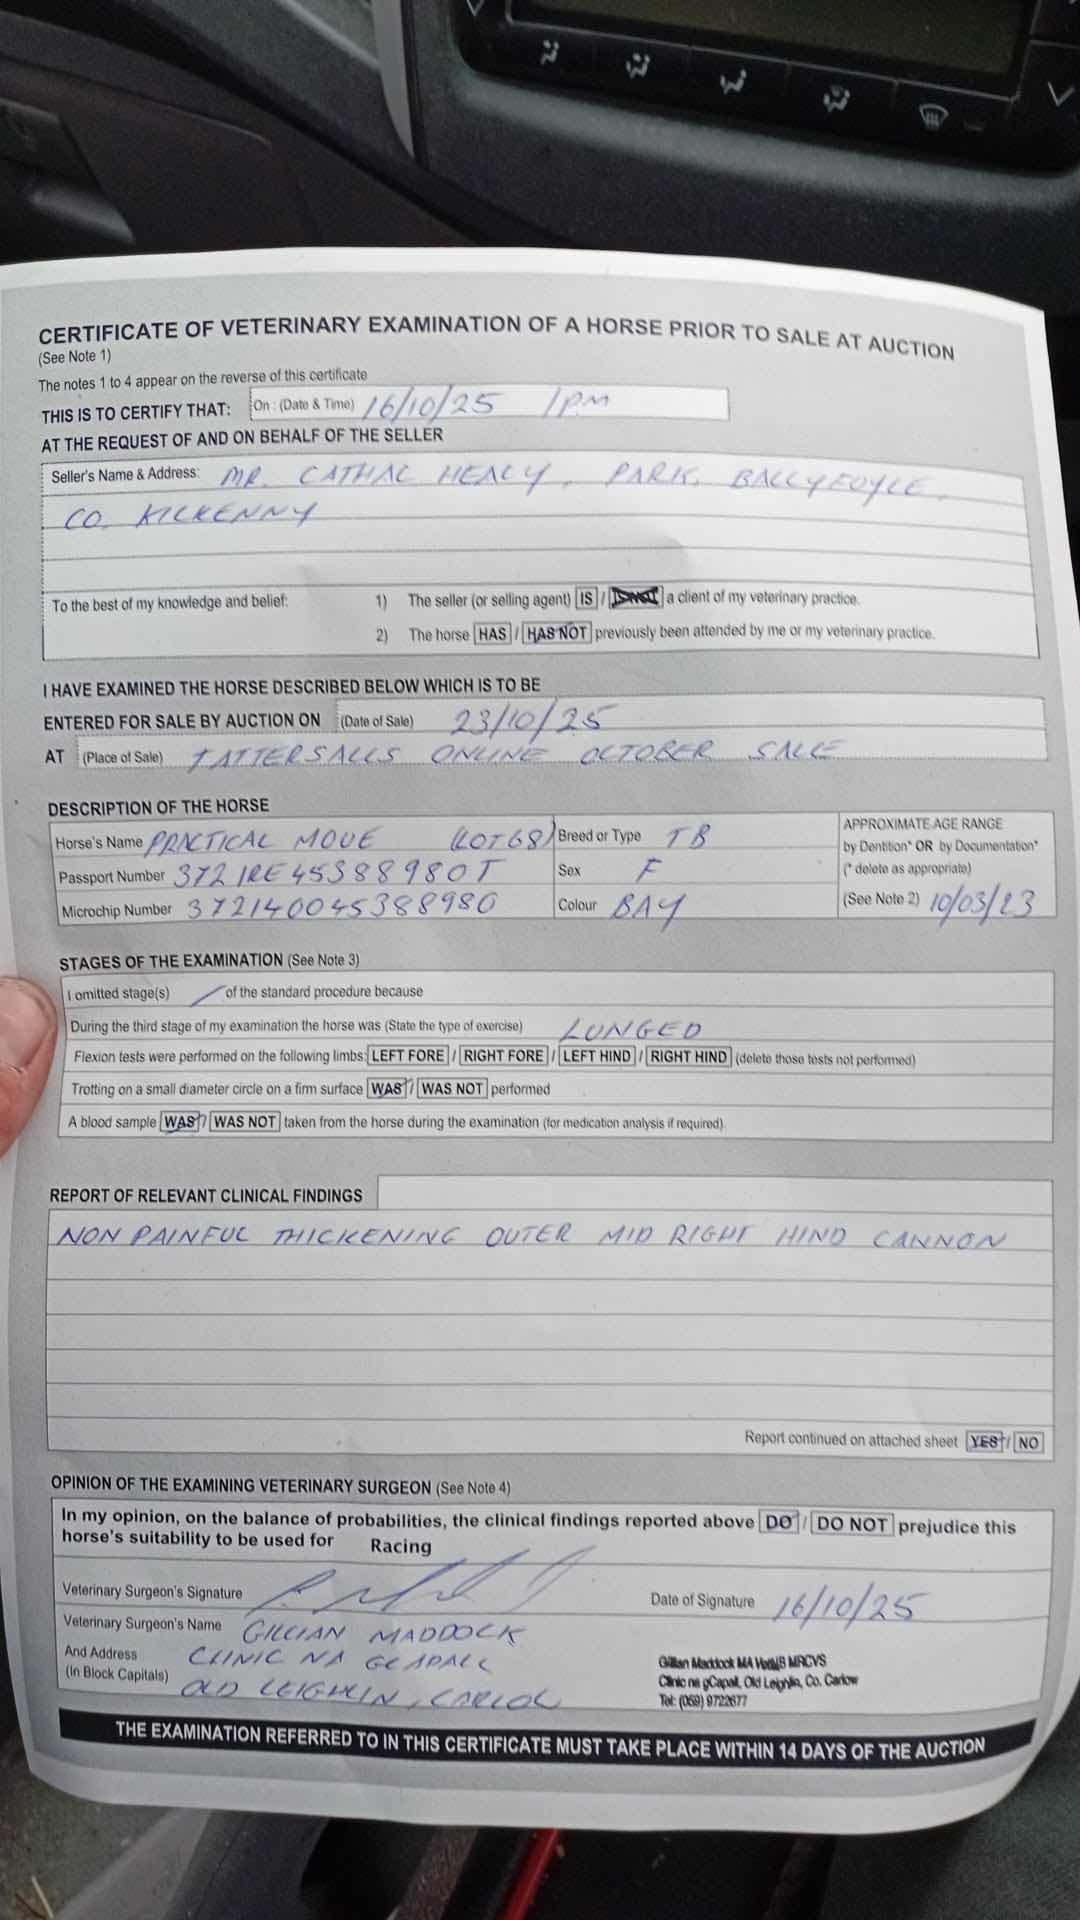 CERTIFICATE OF VETERINARY EXAMINATION OF A HORSE PRIOR TO SALE AT AUCTION
(See Note 1)
The notes 1 to 4 appear on the reverse of this certificate
THIS IS TO CERTIFY THAT: On : (Date & Time) 16/10/25 1PM
AT THE REQUEST OF AND ON BEHALF OF THE SELLER
Seller's Name & Address: MR. CATHAL HEALY, PARK, BALLYFOYLE,
CO. KILKENNY
To the best of my knowledge and belief: 1) The seller (or selling agent) IS / IS NOT a client of my veterinary practice.
2) The horse HAS / HAS NOT previously been attended by me or my veterinary practice.
I HAVE EXAMINED THE HORSE DESCRIBED BELOW WHICH IS TO BE
ENTERED FOR SALE BY AUCTION ON (Date of Sale) 23/10/25
AT (Place of Sale) TATTERSALLS ONLINE OCTOBER SALE
DESCRIPTION OF THE HORSE
Horse's Name PRACTICAL MOVE (LOT 68) Breed or Type TB
Passport Number 372IRE45388980T Sex F
Microchip Number 372140045388980 Colour BAY
APPROXIMATE AGE RANGE
by Dentition* OR by Documentation*
(* delete as appropriate)
(See Note 2) 10/03/23
STAGES OF THE EXAMINATION (See Note 3)
I omitted stage(s) / of the standard procedure because
During the third stage of my examination the horse was (State the type of exercise) LUNGED
Flexion tests were performed on the following limbs: LEFT FORE / RIGHT FORE / LEFT HIND / RIGHT HIND (delete those tests not performed)
Trotting on a small diameter circle on a firm surface WAS / WAS NOT performed
A blood sample WAS / WAS NOT taken from the horse during the examination (for medication analysis if required).
REPORT OF RELEVANT CLINICAL FINDINGS
NON PAINFUL THICKENING OUTER MID RIGHT HIND CANNON
Report continued on attached sheet YES / NO
OPINION OF THE EXAMINING VETERINARY SURGEON (See Note 4)
In my opinion, on the balance of probabilities, the clinical findings reported above DO / DO NOT prejudice this
horse's suitability to be used for Racing
Veterinary Surgeon's Signature Date of Signature 16/10/25
Veterinary Surgeon's Name GILLIAN MADDOCK
And Address CLINIC NA GCAPALL
(In Block Capitals) OLD LEIGHLIN, CARLOW
Gillian Maddock MA VetMB MRCVS
Clinic na gCapall, Old Leighlin, Co. Carlow
Tel: (059) 9722677
THE EXAMINATION REFERRED TO IN THIS CERTIFICATE MUST TAKE PLACE WITHIN 14 DAYS OF THE AUCTION